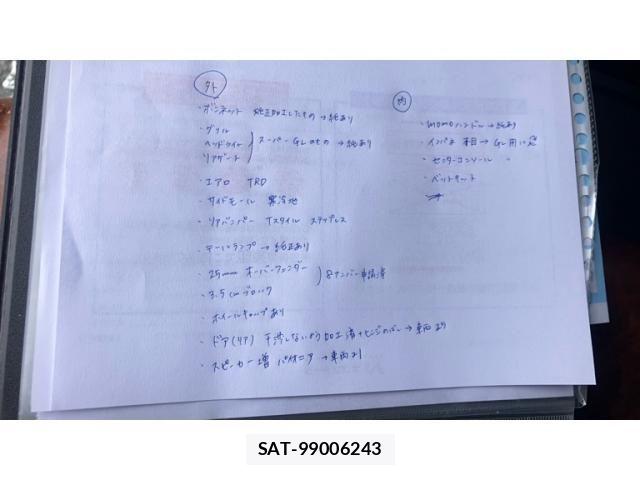 外
・ボンネット 純正加工したもの→純あり
・グリル
ヘッドライト スーパーGLのもの →純あり
リアゲート
・エアロ TRD
・サイドモール 寒冷地
・リアバンパー Tスタイル ステップレス
・テールランプ→純正あり
・25mm オーバーフェンダー
8ナンバー申請済
・3.5cmブロック
・ホイールキャップあり
・ドア(リア) 干渉しないよう加工済+ヒンジカバー→車両より
・スピーカー増 パイオニア→車両より
内
・momoハンドル→純あり
・インパネ 木目→GL用に
・センターコンソール 〃
・ベットキット
SAT-99006243